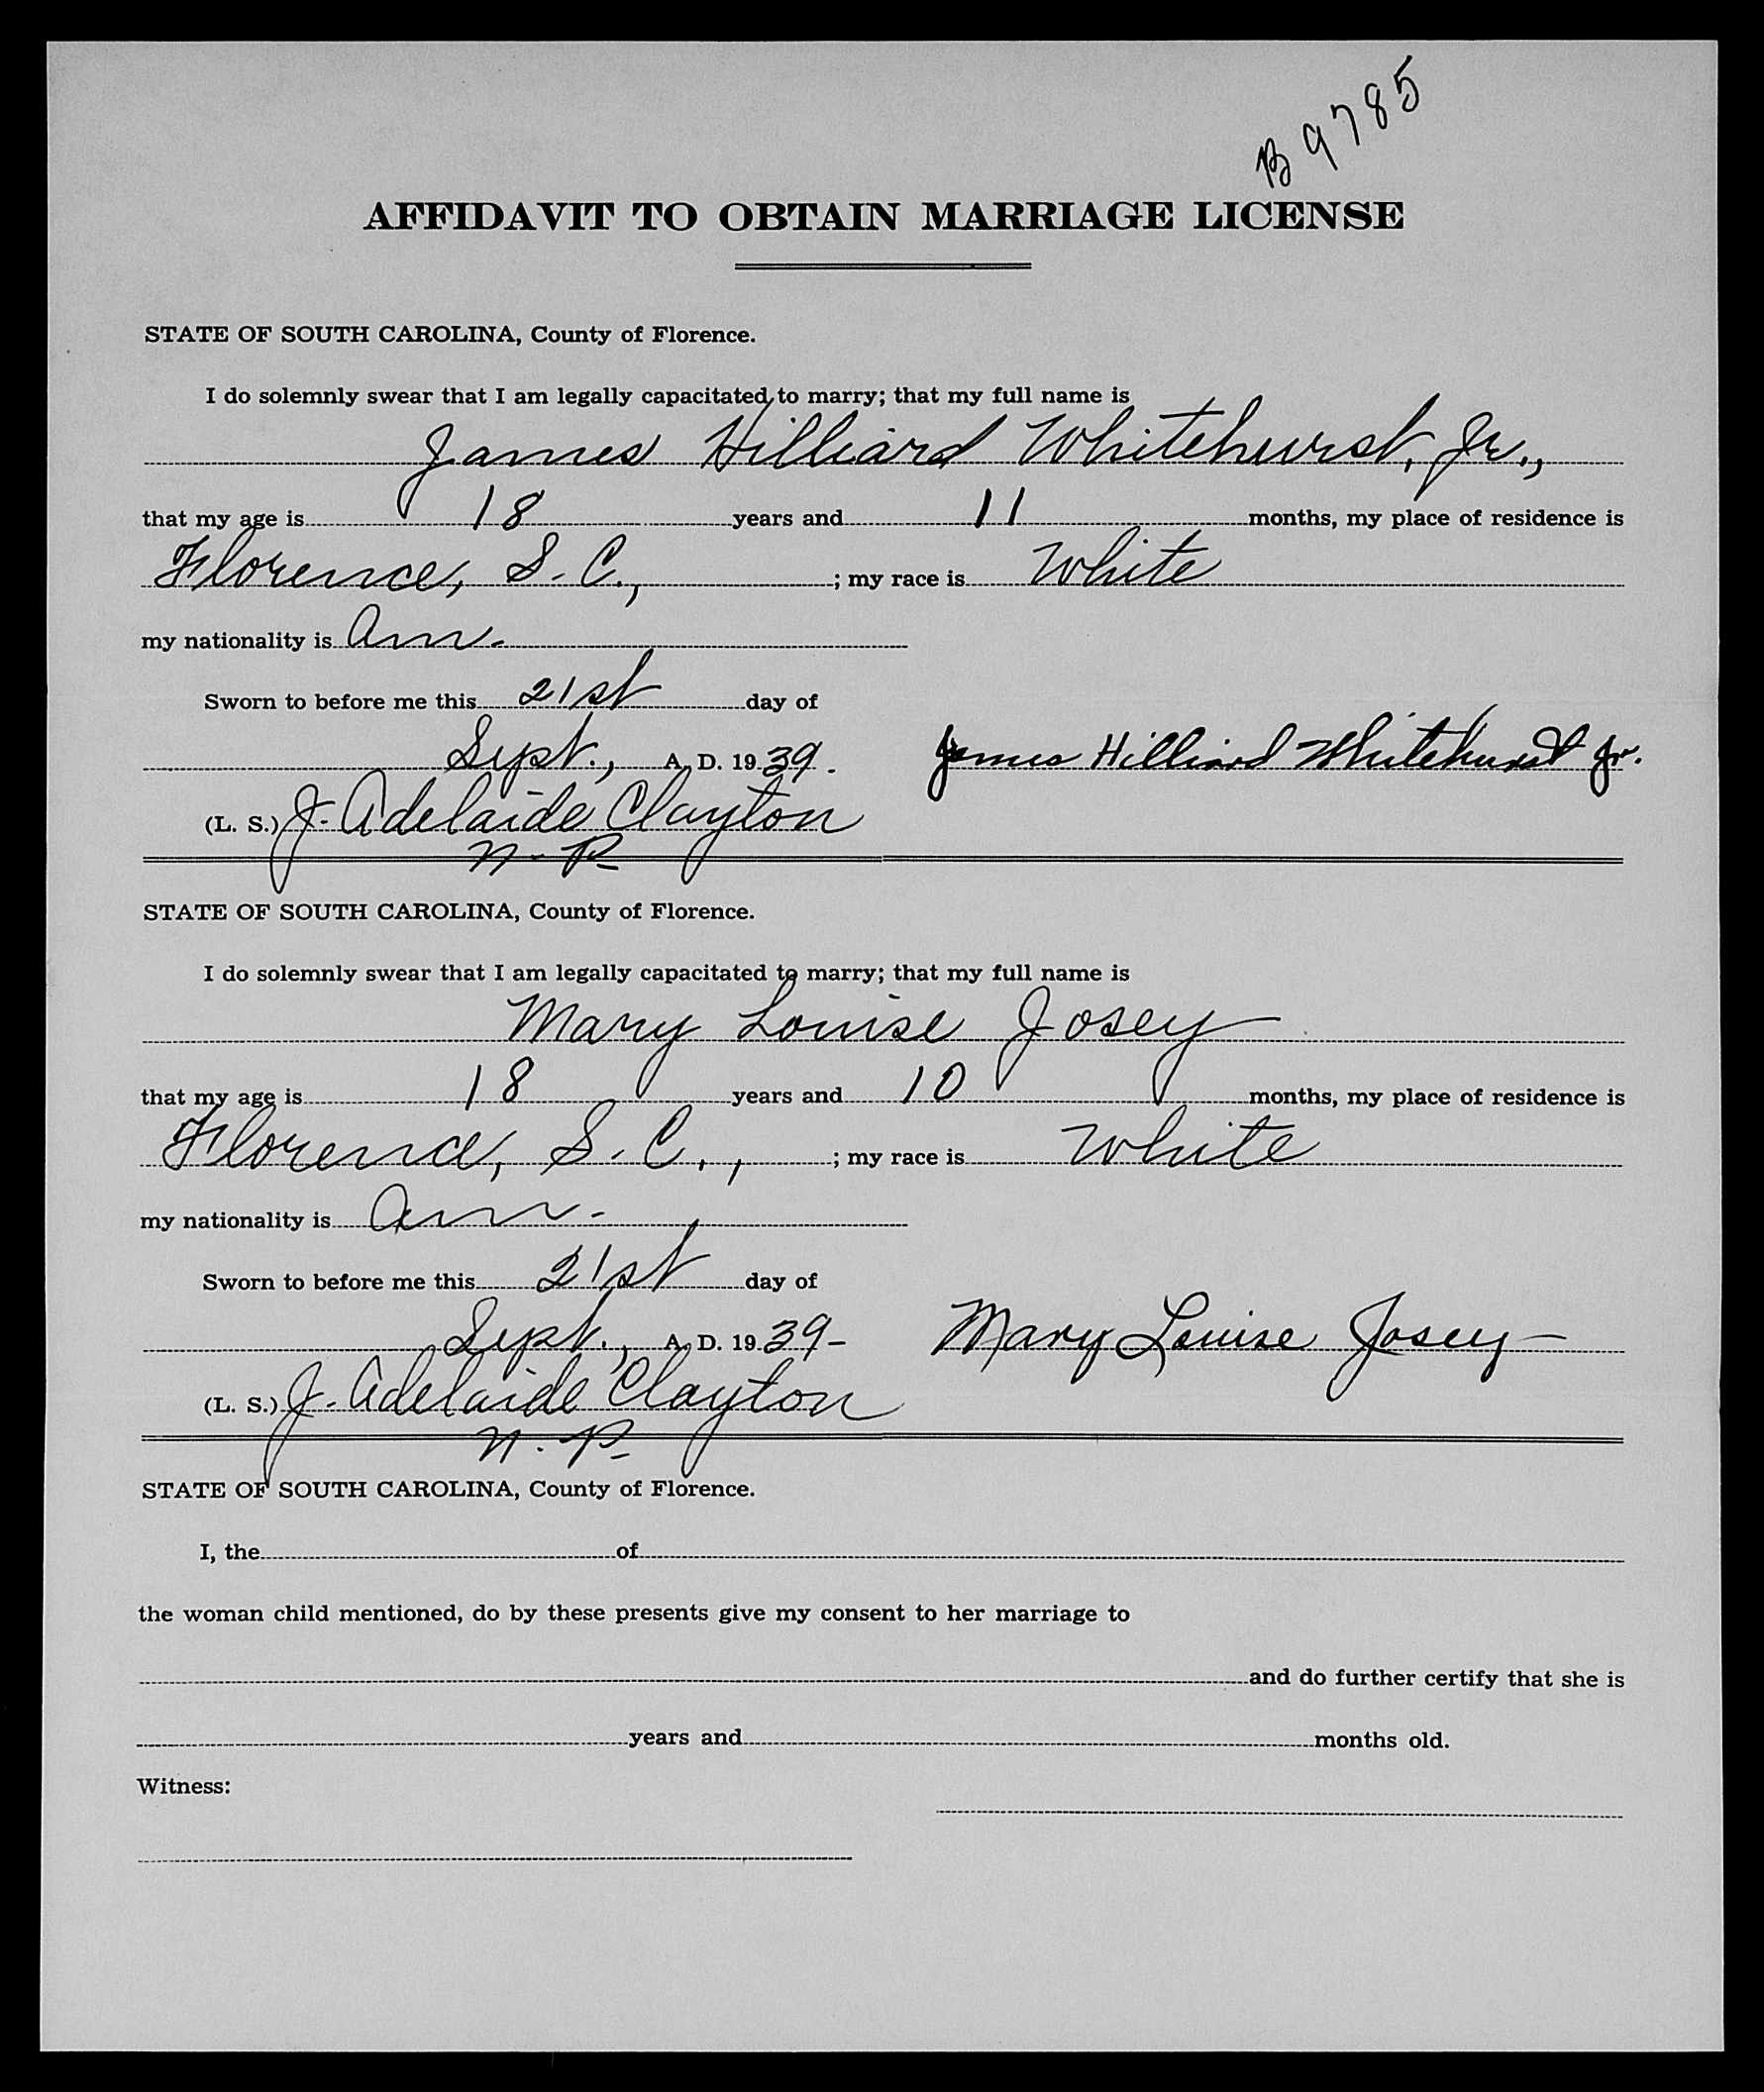 B 9785
AFFIDAVIT TO OBTAIN MARRIAGE LICENSE
STATE OF SOUTH CAROLINA, County of Florence.
I do solemnly swear that I am legally capacitated to marry; that my full name is
James Hilliard Whitehurst, Jr.,
that my age is 18 years and 11 months, my place of residence is
Florence, S. C., ; my race is White
my nationality is Am.
Sworn to before me this 21st day of
Sept., A. D. 1939. James Hilliard Whitehurst Jr.
(L. S.) J. Adelaide Clayton
N. P.
STATE OF SOUTH CAROLINA, County of Florence.
I do solemnly swear that I am legally capacitated to marry; that my full name is
Mary Louise Josey
that my age is 18 years and 10 months, my place of residence is
Florence, S. C., ; my race is White
my nationality is Am.
Sworn to before me this 21st day of
Sept., A. D. 1939- Mary Louise Josey
(L. S.) J. Adelaide Clayton
N. P.
STATE OF SOUTH CAROLINA, County of Florence.
I, the of
the woman child mentioned, do by these presents give my consent to her marriage to
and do further certify that she is
years and months old.
Witness: